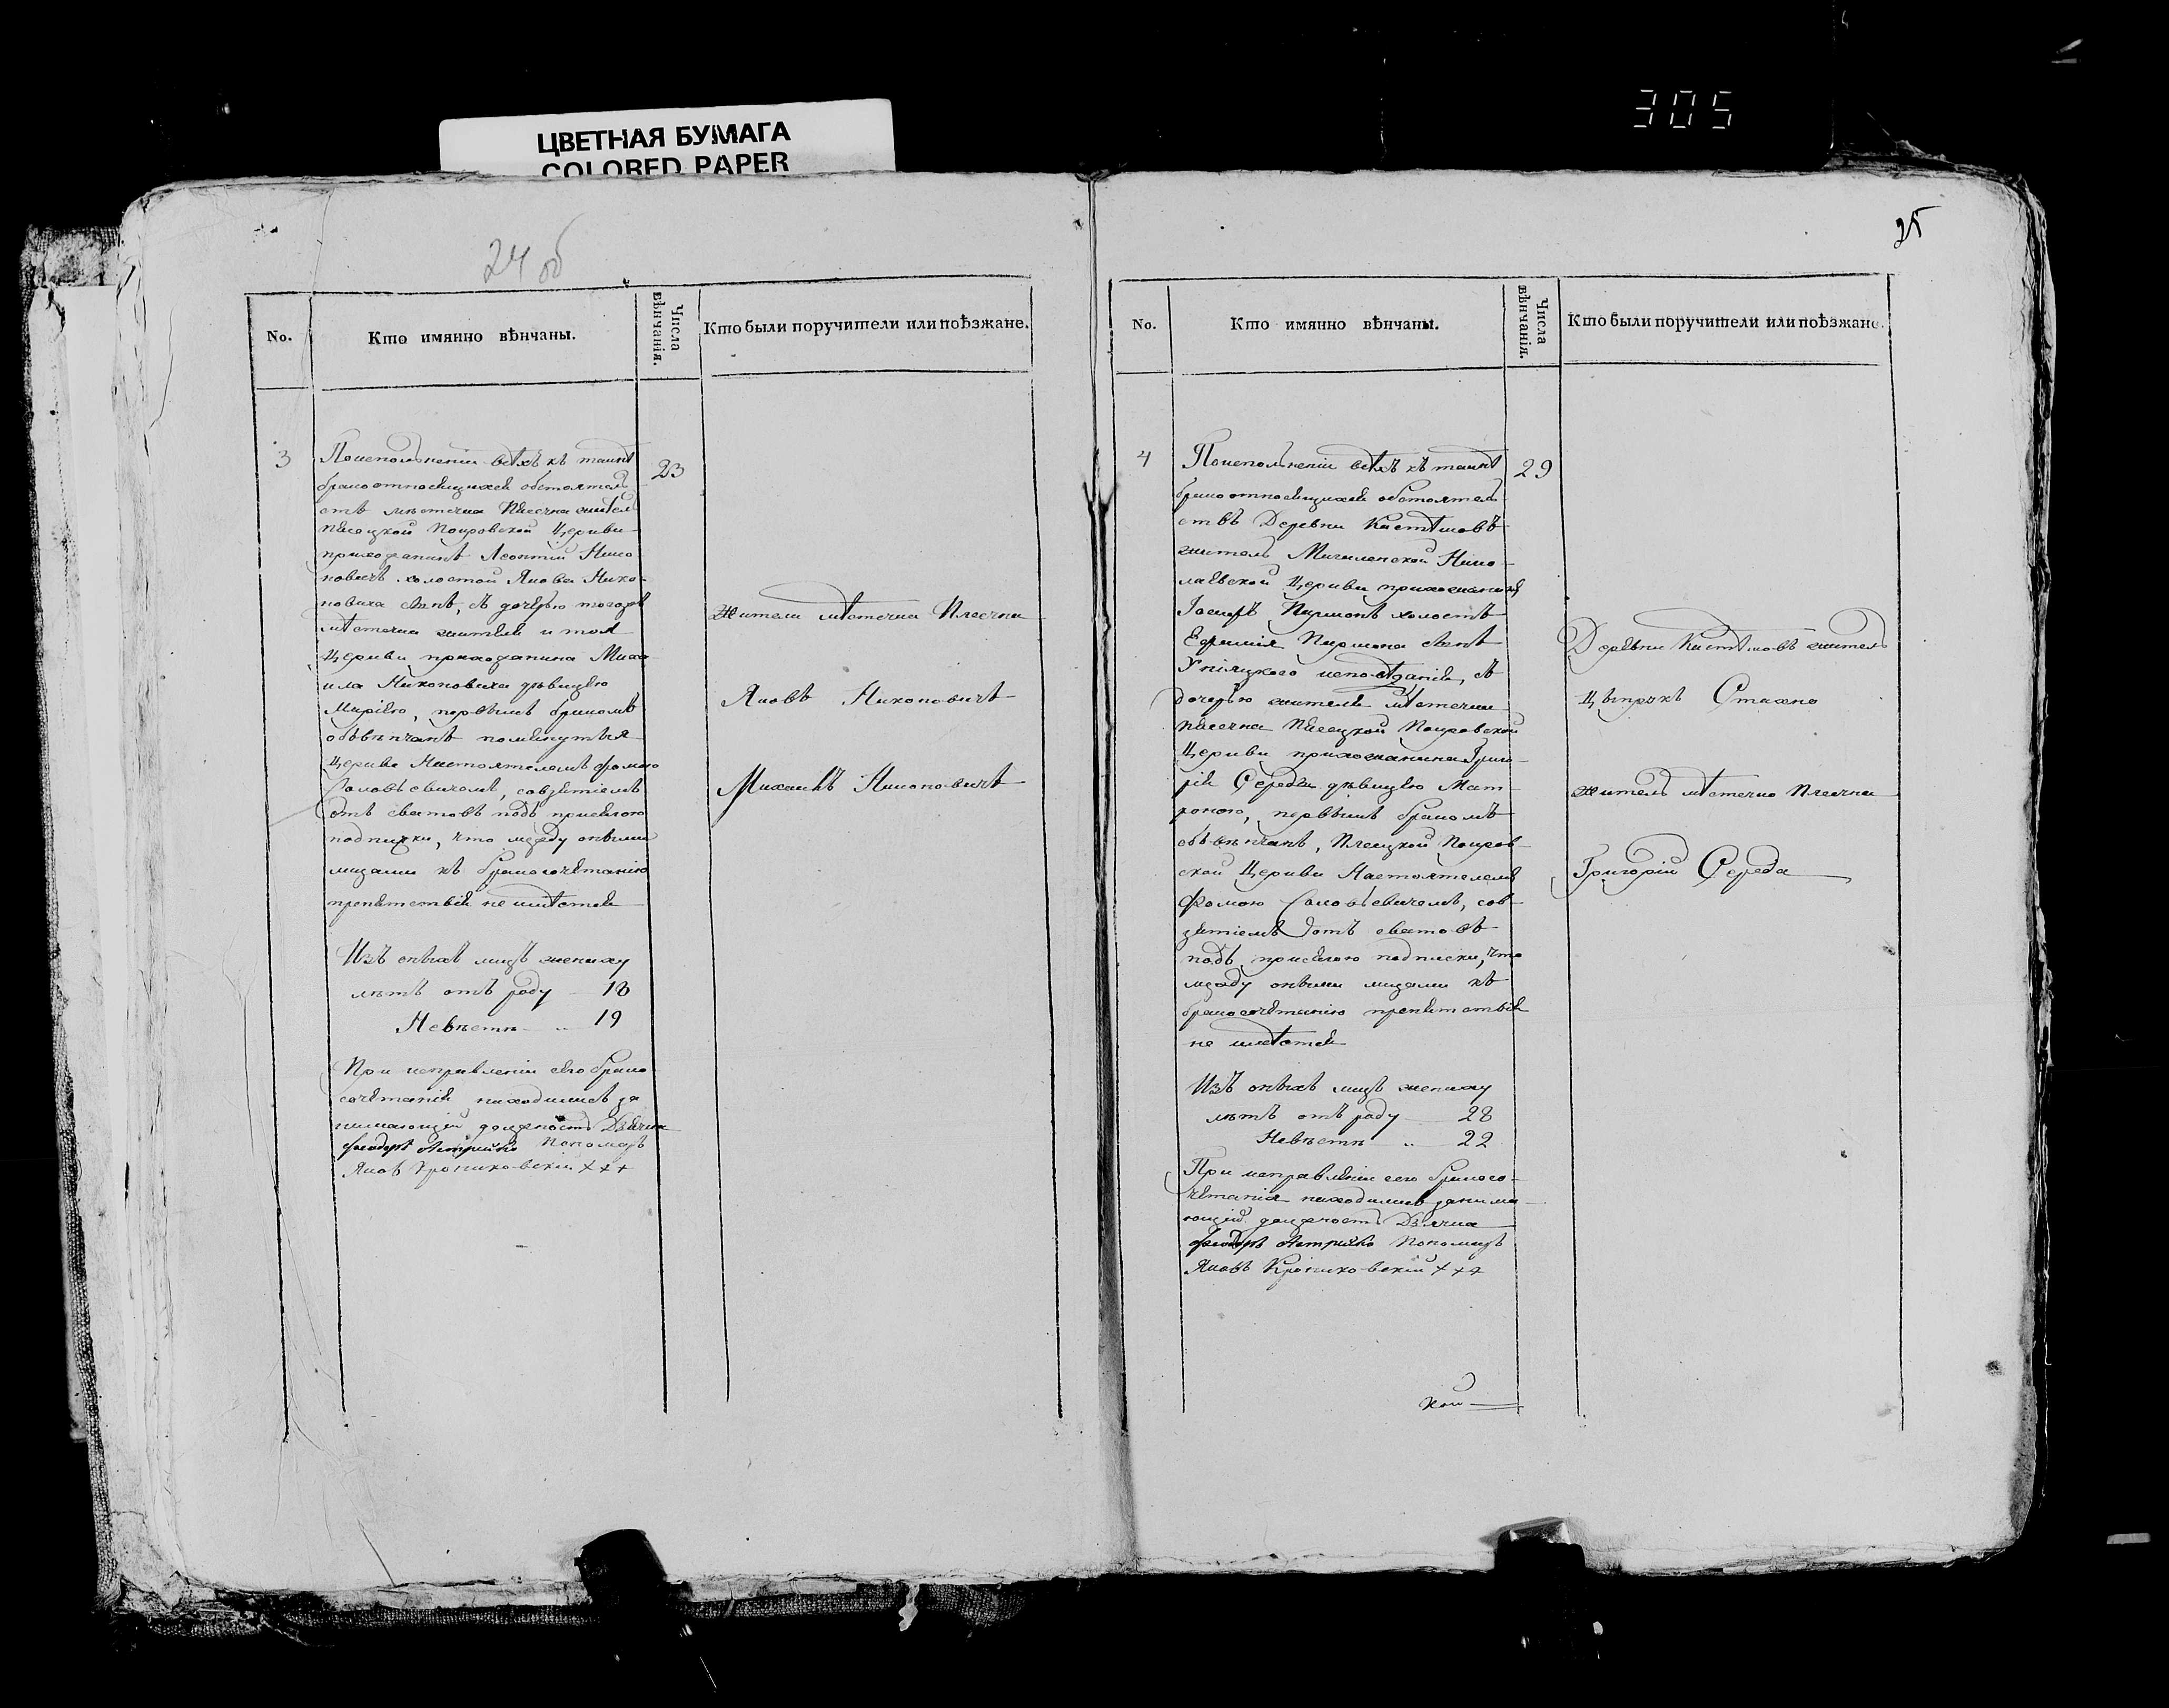 ЦВЕТНАЯ БУМАГА
COLORED PAPER
305
24 об
No.
Кто имянно вѣнчаны.
Числа вѣнчанія.
Кто были поручители или поѣзжане.
3
23
Поисполненіи всѣхъ къ таинѣ
брака относящихся обстоятел
ствъ мѣстечка Плесчна жител
Плесецкой Покровской Церкви
прихожанинъ Леонтій Нико
новичъ холостой Якова Нико
новича сынъ, съ дочерью тогожъ
мѣстечка жителя и тоя
Церкви прихожанина Миха
ила Никоновича дѣвицею
Маріею, первымъ бракомъ
обвѣнчанъ помянутыя
Церкви Настоятелемъ Фомою
Соловьевичемъ, совзятіемъ
отъ сватовъ подъ присягою
подписки, что между оными
лицами къ бракосочетанію
препятствія не имѣется
Изъ оныхъ лицъ жениху
лѣтъ отъ роду 18
Невѣстѣ 19
При исправленіи сего брако
сочетанія находились за
нимающій должность Дьячка
Феодоръ Пономарь
Яковъ +++
Жители мѣстечка Плесчна
Яковъ Никоновичъ
Михаилъ Никоновичъ
25
No.
Кто имянно вѣнчаны.
Числа вѣнчанія.
Кто были поручители или поѣзжане.
4
29
Поисполненіи всѣхъ къ таинѣ
брака относящихся обстоятел
ствъ Деревни
житель Нико
лаевской Церкви прихожанинъ
Іосифъ холостъ
сынъ
Уніяцкого исповѣданія, съ
дочерью жителя мѣстечка
Плесчна Плесецкой Покровской
Церкви прихожанина Григо
рія Середы дѣвицею Мат
роною, первымъ бракомъ
обвѣнчанъ, Плесецкой Покров
ской Церкви Настоятелемъ
Фомою Соловьевичемъ, сов
зятіемъ отъ сватовъ
подъ присягою подписки, что
между оными лицами къ
бракосочетанію препятствія
не имѣется
Изъ оныхъ лицъ жениху
лѣтъ отъ роду 28
Невѣстѣ 22
При исправленіи сего бракосо
четанія находились занима
ющій должность Дьячка
Феодоръ Пономарь
Яковъ +++
Деревни житель
Стахно
житель мѣстечка Плесчна
Григорій Середа